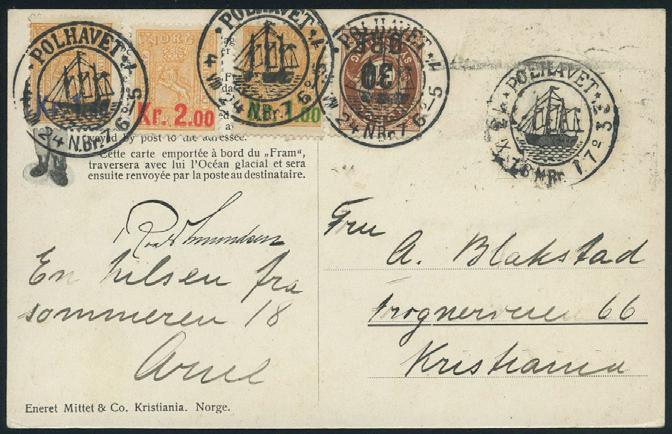 POLHAVET
POLHAVET
POLHAVET
POLHAVET
Kr. 2.00
1.00
30
ØRE
24 N.Br. 76°
24 N.Br. 76°
24 N.Br. 76°
78 N.Br. 172°
by post to the adressee.
„Cette carte emportée à bord du „Fram“,
traversera avec lui l'Océan glacial et sera
ensuite renvoyée par la poste au destinataire.
Roald Amundsen
En hilsen fra
sommeren 18
Arne
Fru
A. Blakstad
Frognerveien 66
Kristiania
Eneret Mittet & Co. Kristiania. Norge.